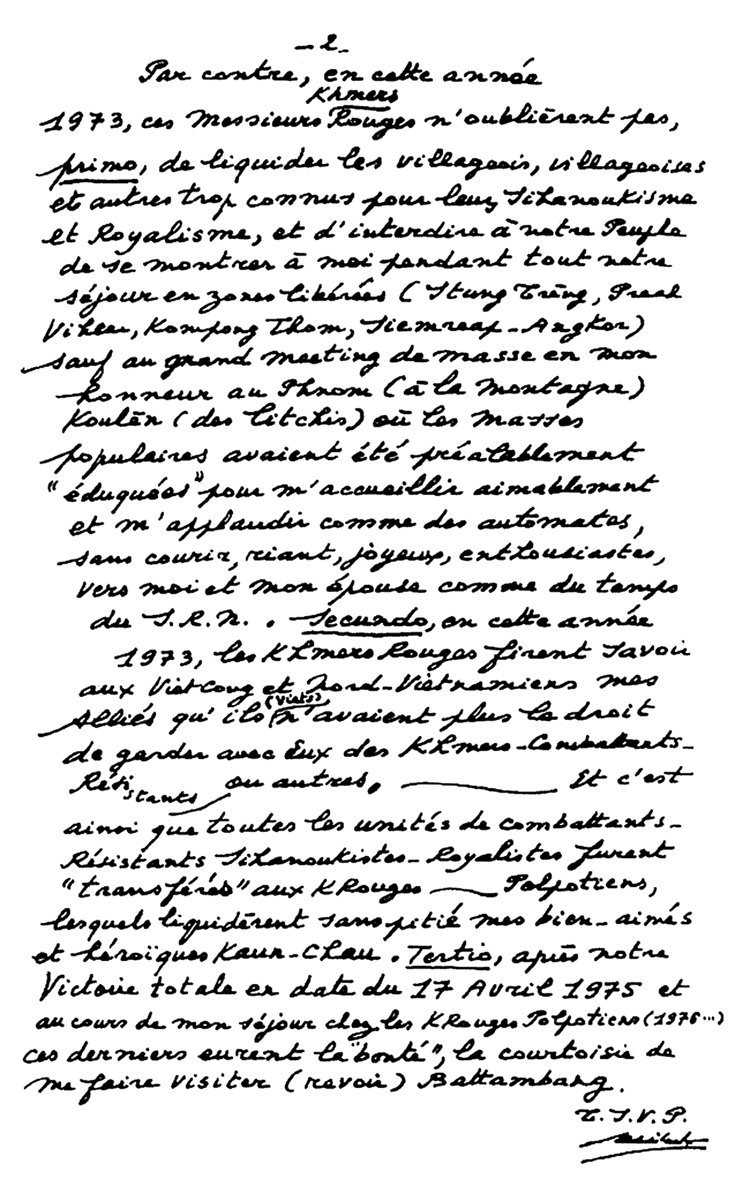 - 2 -
Par contre, en cette année
Khmers
1973, ces Messieurs Rouges n'oublièrent pas,
primo, de liquider les villageois, villageoises
et autres trop connus pour leur Sihanoukisme
et Royalisme, et d'interdire à notre Peuple
de se montrer à moi pendant tout notre
séjour en zones libérées (Stung Trèng, Preah
Vihear, Kompong Thom, Siemreap-Angkor)
sauf au grand meeting de masse en mon
honneur au Phnom (à la Montagne)
Koulèn (des litchis) où les Masses
populaires avaient été préalablement
"éduquées" pour m'accueillir aimablement
et m'applaudir comme des automates,
sans courir, riant, joyeux, enthousiastes,
vers moi et mon épouse comme du temps
du S.R.N.. Secundo, en cette année
1973, les Khmers Rouges firent savoir
aux Vietcong et Nord-Vietnamiens mes
Alliés qu'ils (Viets) n'avaient plus le droit
de garder avec Eux des Khmers-Combattants-
Résistants ou autres. Et c'est
ainsi que toutes les unités de combattants-
Résistants Sihanoukistes-Royalistes furent
"transférés" aux KRouges Polpotiens,
lesquels liquidèrent sans pitié mes bien-aimés
et héroïques Kaun-Chau. Tertio, après notre
Victoire totale en date du 17 Avril 1975 et
au cours de mon séjour chez les KRouges Polpotiens (1976...)
ces derniers eurent la "bonté", la courtoisie de
me faire visiter (revoir) Battambang.
T.S.V.P.